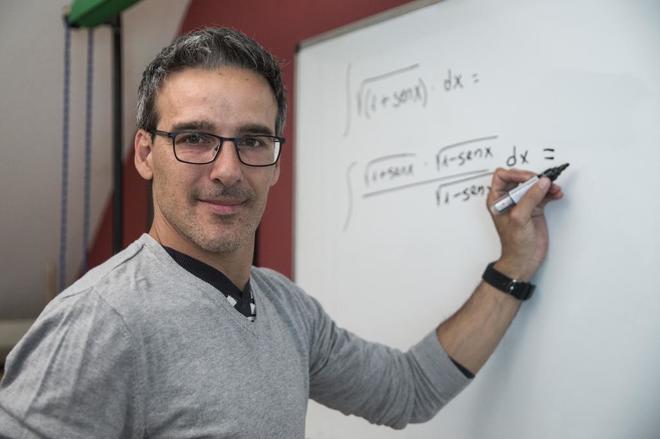 ∫ √(1+senx) · dx =
∫ √1+senx · √1-senx / √1-senx dx =